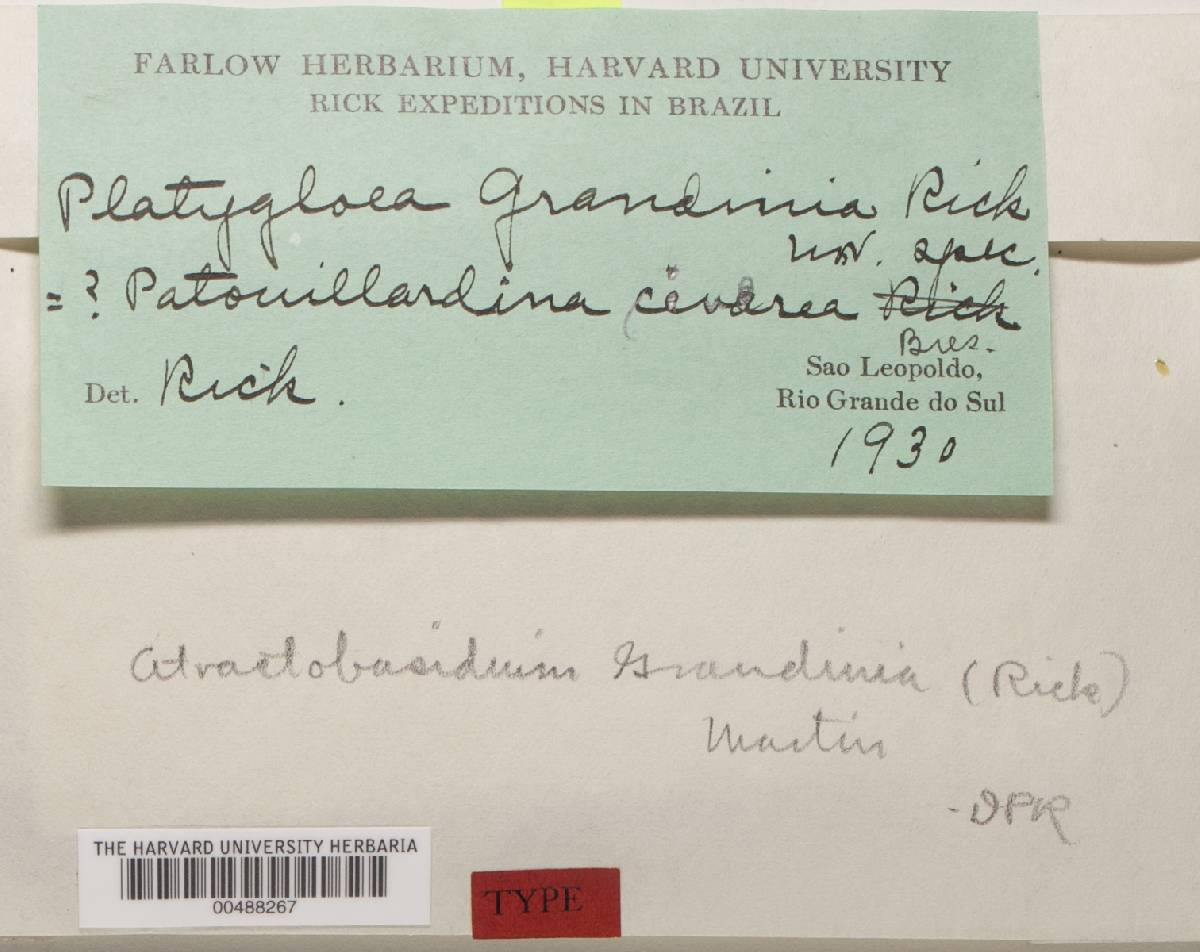 FARLOW HERBARIUM, HARVARD UNIVERSITY
RICK EXPEDITIONS IN BRAZIL
Platygloea Grandinia Rick
nov. spec.
= ? Patouillardina cinerea Rick
Bres.
Det. Rick.
Sao Leopoldo,
Rio Grande do Sul
1930
Atractobasidium Grandinia (Rick)
Martin
- DPR
THE HARVARD UNIVERSITY HERBARIA
00488267
TYPE